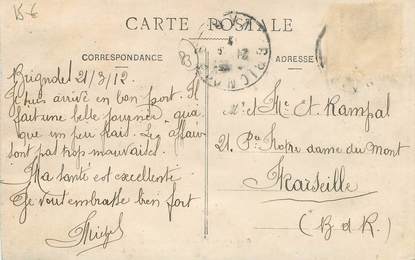 15 €
CARTE POSTALE
CORRESPONDANCE
ADRESSE
Brignoles 21/3/12.
Je suis arrivé en bon port. Il
fait une belle journée, quoi
que un peu frais. Les affaires
sont pas trop mauvaises.
Ma santé est excellente
Je vous embrasse bien fort
Mr & Me Et. Rampal
21. Pce Notre dame du Mont
Marseille
(B d R.)